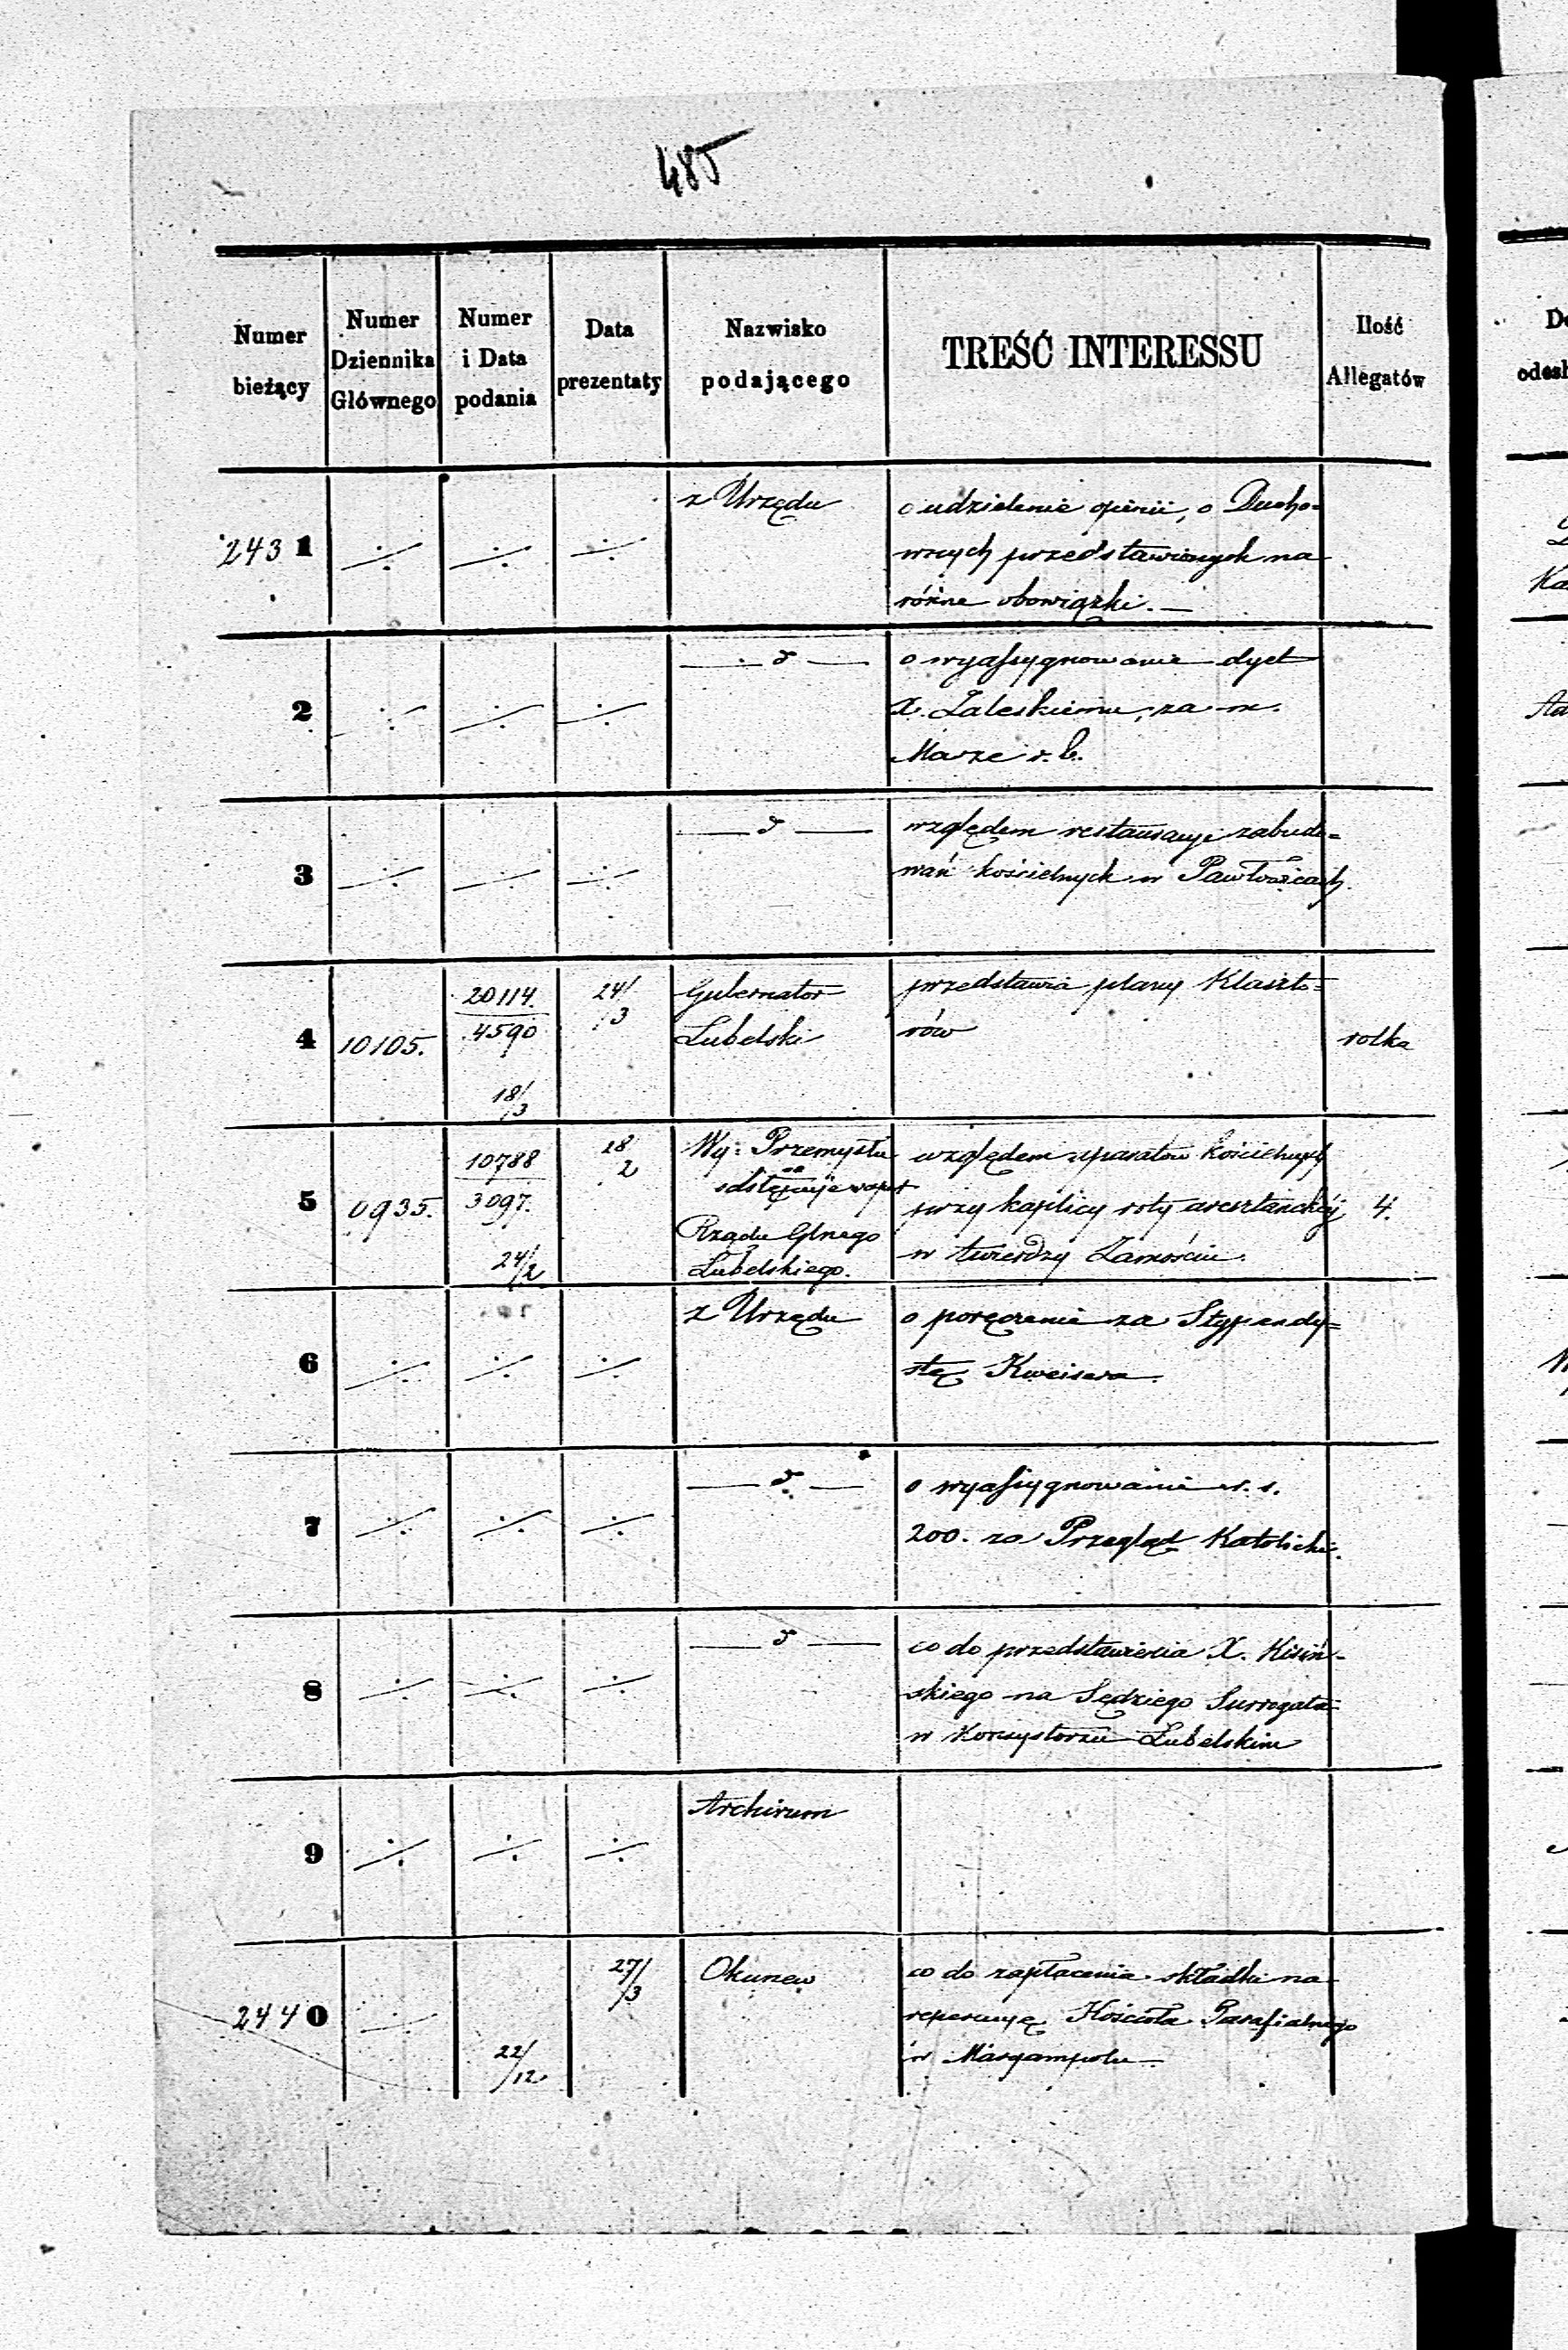 485
Numer bieżący
Numer Dziennika Głównego
Numer i Data podania
Data prezentaty
Nazwisko podającego
TREŚĆ INTERESSU
Ilość Allegatów
2431 ÷ ÷ ÷ z Urzędu
o udzielenie opinii, oDucho=
wnych przedstawionych na
różne obowiązki. —
2 ÷ ÷ ÷ — d —
o wyassygnowanie dyet
X. Zaleskiemu, za m.
Marzec r. b.
3 ÷ ÷ ÷ — d —
względem restauracyi zabudo=
wań kościelnych w Pawłowicach.
4 10105. 20114. / 4590 18/3 24/3
Gubernator
Lubelski
przedstawia plany Klaszto=
rów
rolka
5 0935. 10788 / 3097. 24/2 28/2
Wy: Przemysłu
odstępuje
Rządu Glnego
Lubelskiego.
względem aparatów kościelnych
przy kaplicy roty aresztanckiej
w twierdzy Zamościu.
4.
6 ÷ ÷ ÷ z Urzędu
o poręczenie za Stypendy=
stę Kweisera.
7 ÷ ÷ ÷ — d —
o wyassygnowanie r. s.
200. za Przegląd Katolicki.
8 ÷ ÷ ÷ — d —
co do przedstawienia X. Kisiń=
skiego na Sędziego Surrogata
w Konsystorzu Lubelskim
9 ÷ ÷ ÷ Archivum
2440 ÷ 22/12 27/3 Okunew
co do zapłacenia składki na
reperacyę Kościoła Parafialnego
w Maryampolu.